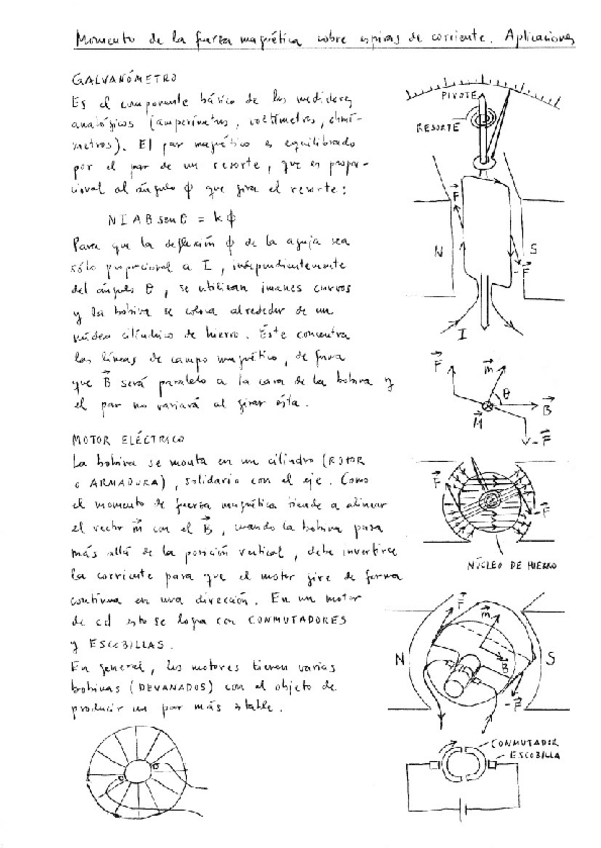 Momento de la fuerza magnética sobre espiras de corriente. Aplicaciones
GALVANÓMETRO
Es el componente básico de los medidores
analógicos (amperímetros, voltímetros, ohmí-
metros). El par magnético es equilibrado
por el par de un resorte, que es propor-
cional al ángulo ϕ que gira el resorte:
N I A B sen θ = k ϕ
Para que la deflexión ϕ de la aguja sea
sólo proporcional a I, independientemente
del ángulo θ, se utilizan imanes curvos
y la bobina se coloca alrededor de un
núcleo cilíndrico de hierro. Éste concentra
las líneas de campo magnético, de forma
que B⃗ será paralelo a la cara de la bobina y
el par no variará al girar ésta.
PIVOTE
RESORTE
F⃗
N
S
-F⃗
I
F⃗
m⃗
θ
M⃗
B⃗
-F⃗
MOTOR ELÉCTRICO
La bobina se monta en un cilindro (ROTOR
o ARMADURA), solidario con el eje. Como
el momento de fuerza magnética tiende a alinear
el vector m⃗ con el B⃗, cuando la bobina pasa
más allá de la posición vertical, debe invertirse
la corriente para que el motor gire de forma
continua en una dirección. En un motor
de cd esto se logra con CONMUTADORES
y ESCOBILLAS.
En general, los motores tienen varias
bobinas (DEVANADOS) con el objeto de
producir un par más estable.
F⃗
-F⃗
NÚCLEO DE HIERRO
F⃗
m⃗
N
B⃗
S
-F⃗
CONMUTADOR
ESCOBILLA